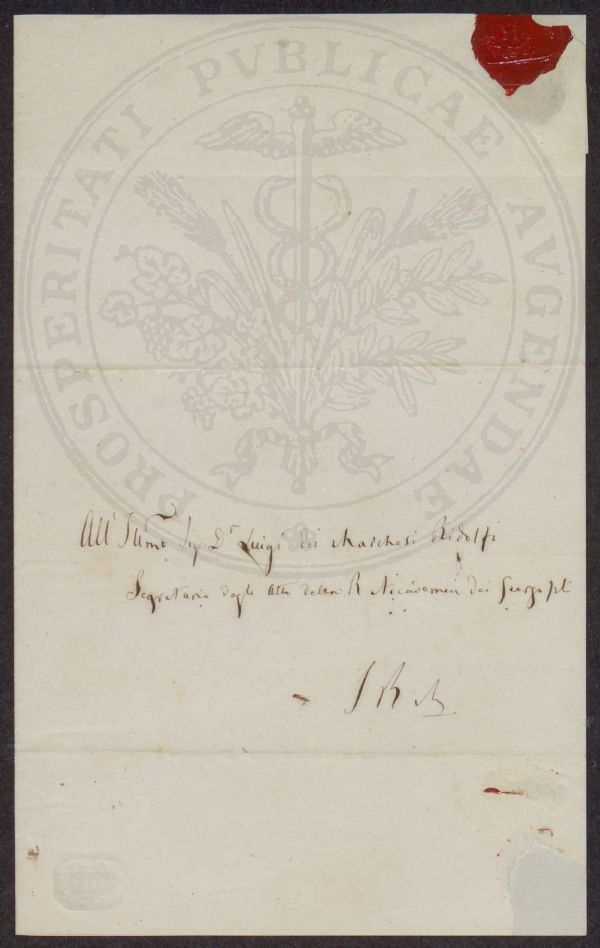 PROSPERITATI PVBLICAE AVGENDAE
All' Illmo Sig. Dr Luigi dei Marchesi Ridolfi
Segretario degli Atti della R Accademia dei Georgofili